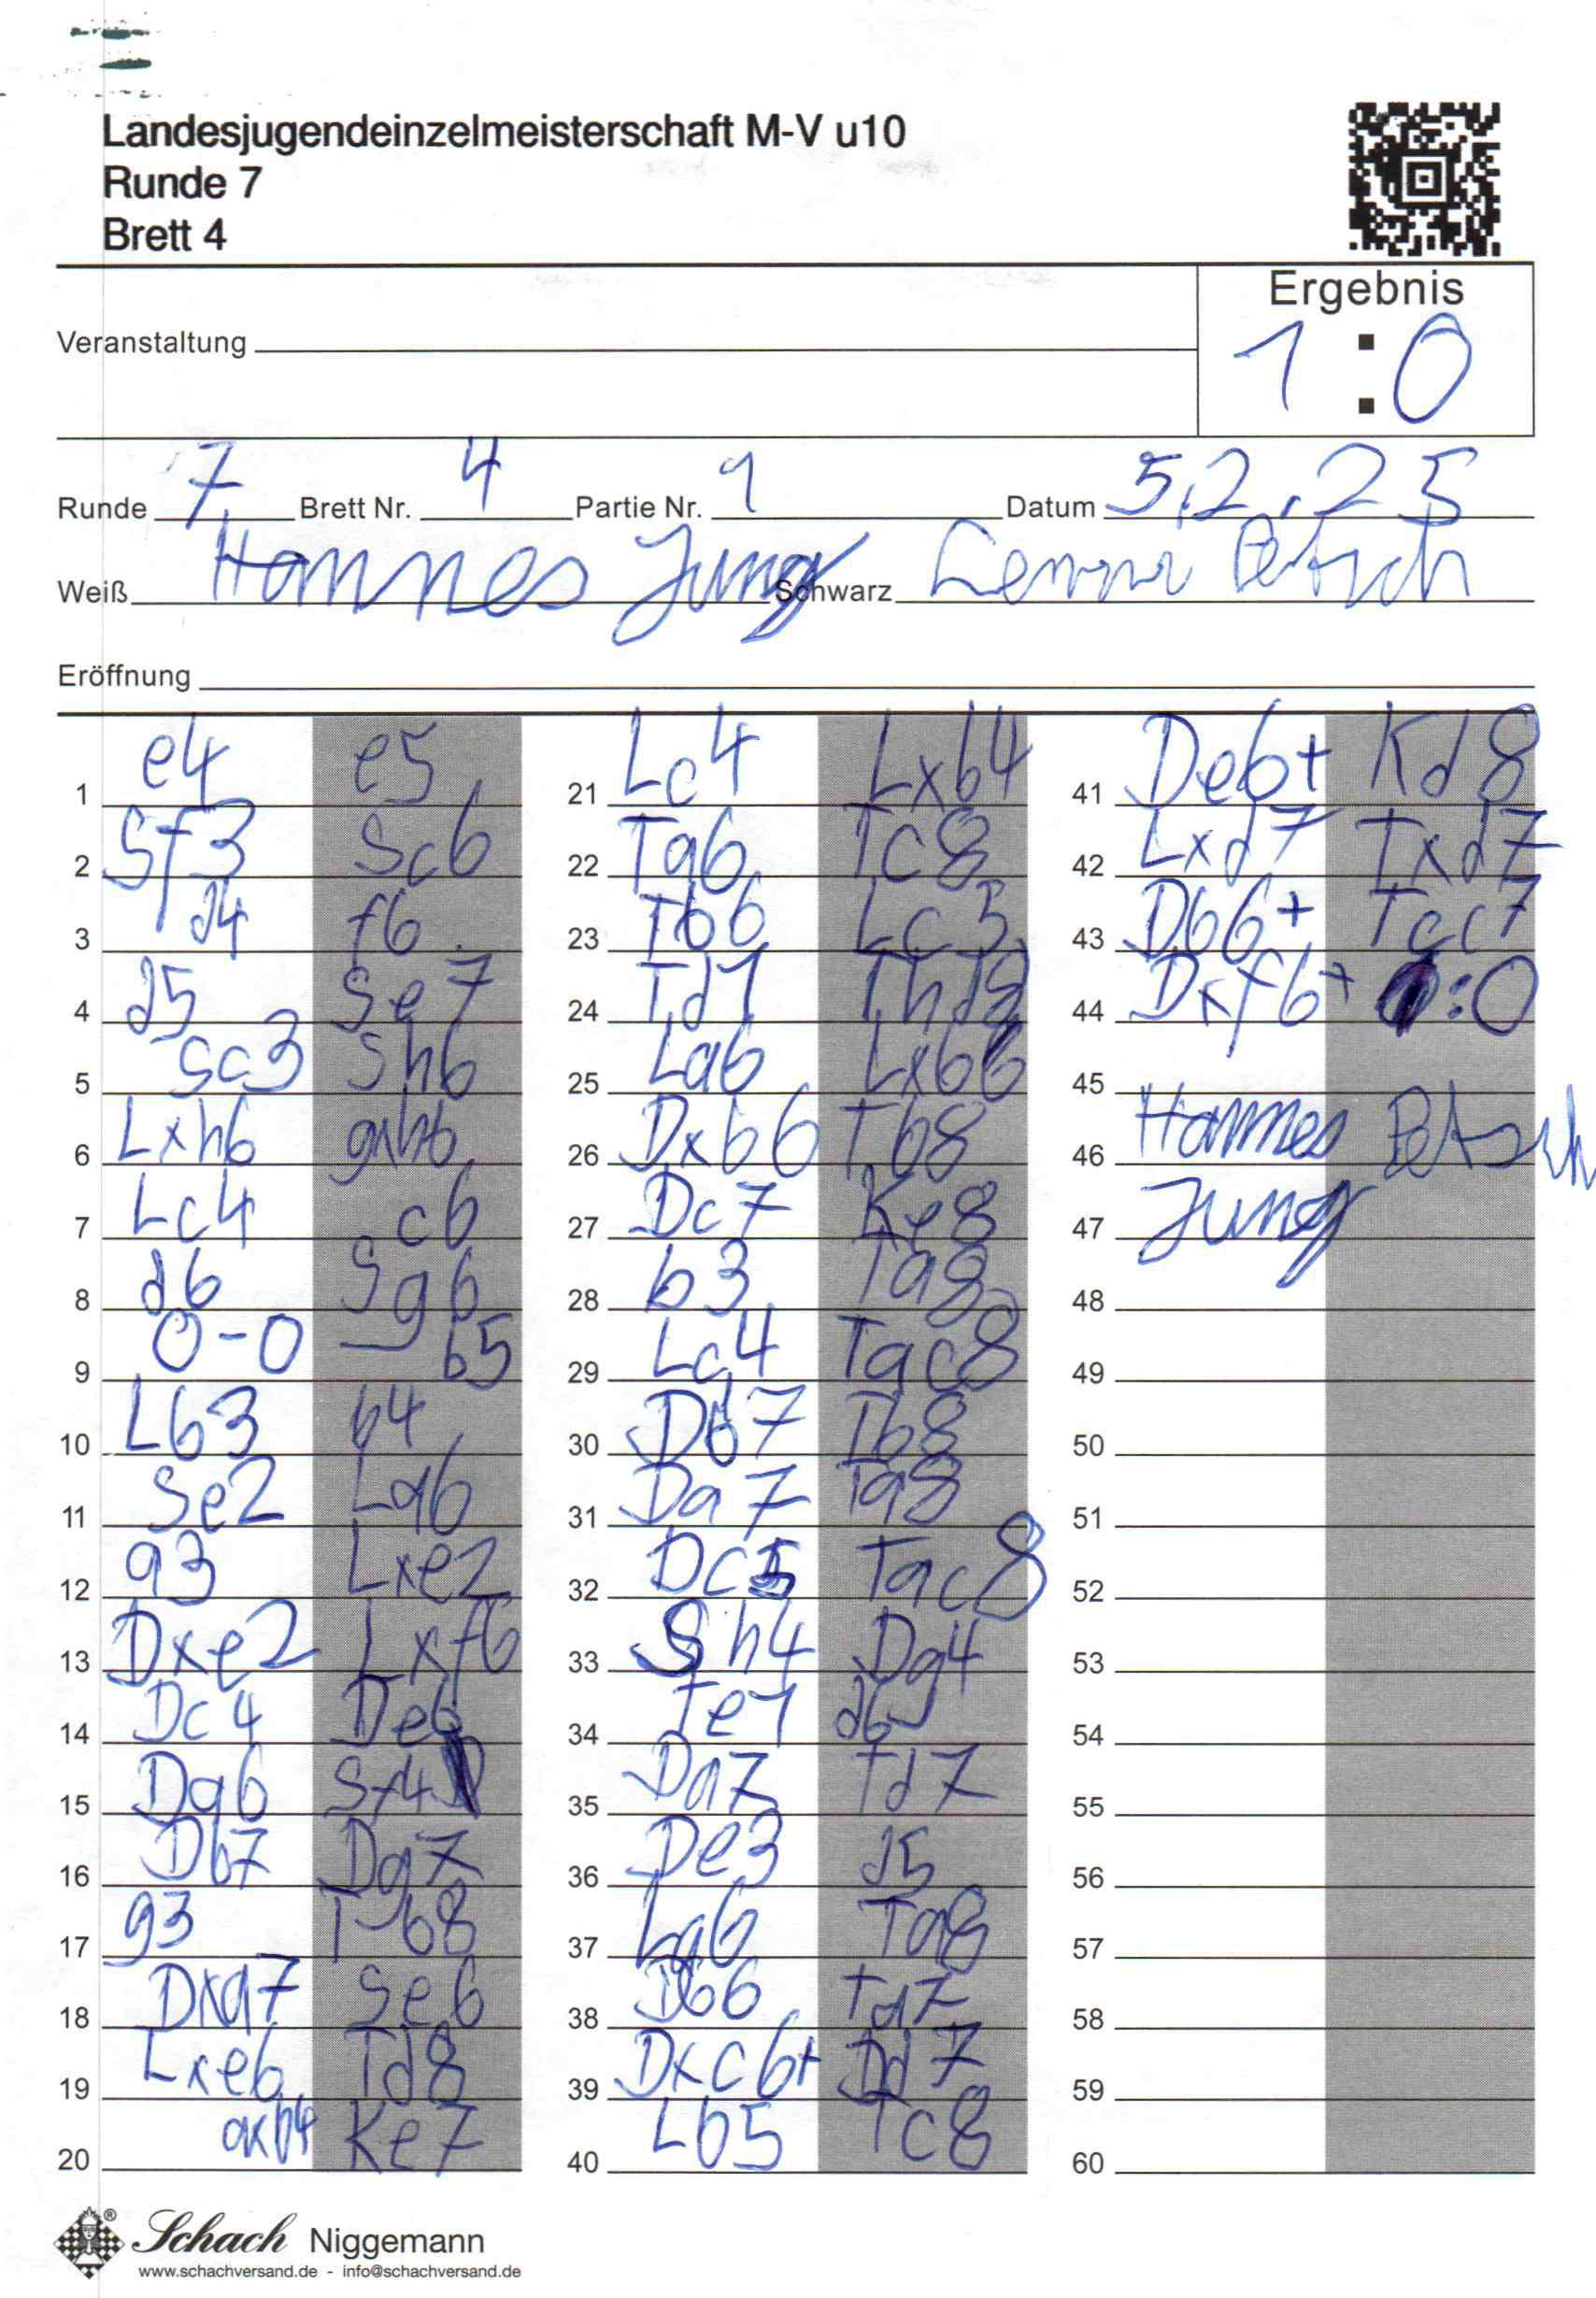 Landesjugendeinzelmeisterschaft M-V u10
Runde 7
Brett 4
Ergebnis
1:0
Veranstaltung
Runde 7 Brett Nr. 4 Partie Nr. 1 Datum 5.2.25
Weiß Hannes Jung Schwarz Petsch
Eröffnung
1 e4 e5
2 Sf3 Sc6
3 d4 f6
4 d5 Se7
5 Sc3 Sh6
6 Lxh6 gxh6
7 Lc4 c6
8 d6 Sg6
9 0-0 b5
10 Lb3 b4
11 Se2 La6
12 a3 Lxe2
13 Dxe2 Lxf6
14 Dc4 De6
15 Da6 Sf4
16 Db7 Dg7
17 g3 Tb8
18 Dxa7 Se6
19 Lxe6 Td8
20 axb4 Ke7
21 Lc4 Lxb4
22 Ta6 Tc8
23 Tb6 Lc5
24 Td1 Thd8
25 La6 Lxb6
26 Dxb6 Tb8
27 Dc7 Ke8
28 b3 Ta8
29 Lc4 Tac8
30 Db7 Tb8
31 Da7 Ta8
32 Dc5 Tac8
33 Sh4 Dg4
34 Te1 d6
35 Da7 Td7
36 De3 d5
37 La6 Ta8
38 Db6 Ta7
39 Dxc6+ Dd7
40 Lb5 Tc8
41 De6+ Kd8
42 Lxd7 Txd7
43 Db6+ Tcc7
44 Dxf6+ :0
45
46 Hannes Petsch
47 Jung
48
49
50
51
52
53
54
55
56
57
58
59
60
Schach Niggemann
www.schachversand.de - info@schachversand.de